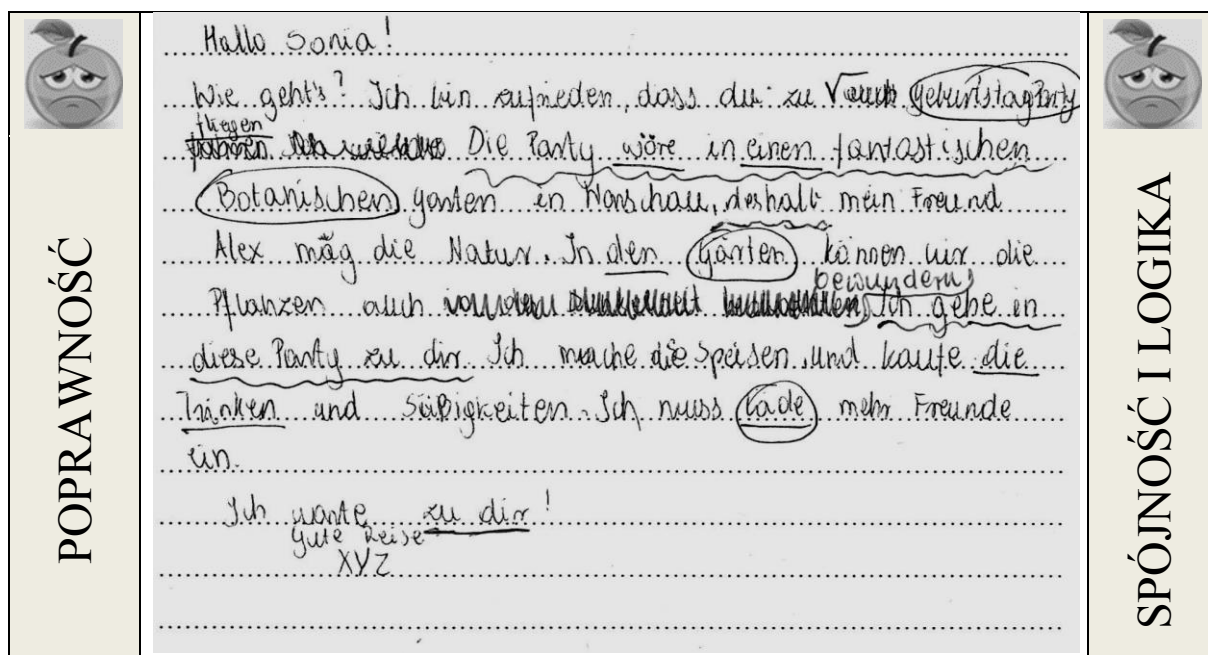 POPRAWNOŚĆ
Hallo Sonia!
Wie geht's? Ich bin zufrieden, dass du zu √ GeburtstagParty
fliegen
Die Party wöre in einen fantastischen
Botanischen garten in Warschau, deshalb mein Freund
Alex mäg die Natur. In den Gärten können wir die
bewundern
Pflanzen auch Ich gehe in
diese Party zu dir. Ich mache die Speisen und kaufe die
Trinken und Süßigkeiten. Ich muss lade mehr Freunde
ein.
Ich warte zu dir!
Gute Reise
XYZ
SPÓJNOŚĆ I LOGIKA